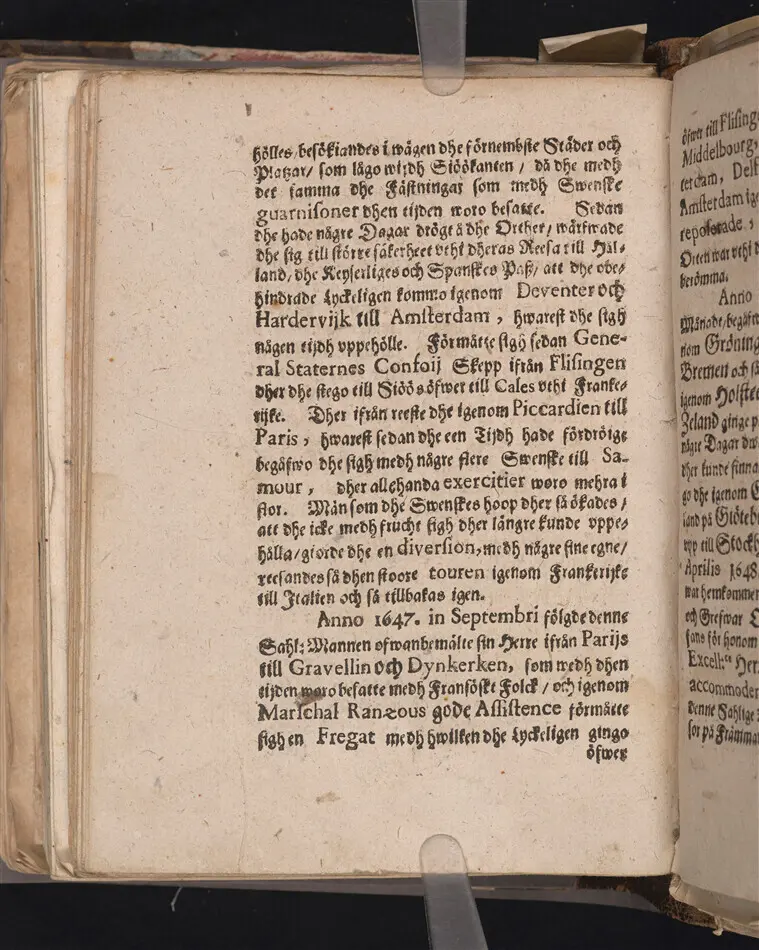 hölles/ besökiandes i wägen dhe förnembste Städer och
Platzar/ som lågo widh Siöökanten/ då dhe medh
det samma dhe Fästningar som medh Swenske
guarnisoner dhen tijden woro besatte. Sedan
dhe hade någre Dagar drögt å dhe Orther/ wärfwade
dhe sig till större säkerheet vthi dheras Reesa till Hål-
land/ dhe Keyserliges och Spanskes Paß/ att dhe obe-
hindrade Lyckeligen kommo igenom Deventer och
Hardervijk till Amsterdam, hwarest dhe sigh
någen tijdh vppehölle. Förmåtte sigh sedan Gene-
ral Staternes Confoij Skepp ifrån Flisingen
dher dhe stego till Siöös öfwer till Cales vthi Franke-
rijke. Dher ifrån reeste dhe igenom Piccardien till
Paris, hwarest sedan dhe een Tijdh hade fördröige
begåfwo dhe sigh medh någre flere Swenske till Sa-
mour, dher allehanda exercitier woro mehra i
flor. Män som dhe Swenskes hoop dher så ökades/
att dhe icke medh frucht sigh dher längre kunde vppe-
hålla/ giorde dhe en diversion, medh någre sine egne/
reesandes så dhen stoore touren igenom Frankerijke
till Italien och så tillbakas igen.
Anno 1647. in Septembri fölgde denne
Sahl: Mannen ofwanbemälte sin Herre ifrån Parijs
till Gravellin och Dynkerken, som wedh dhen
tijden woro besatte medh Fransöskt Folck/ och igenom
Marschal Ranzous gode Assistence förmåtte
sigh en Fregat medh hwilken dhe Lyckeligen gingo
öfwer
öfwer till Flising
Middelbourg,
Amsterdam ige
Orten war vthi d
berömma.
Anno
nom Gröning
Bremen och så
igenom Holstee
Zeland ginge p
någre Dagar dw
dher kunde finna
go dhe igenom
land på Giötebo
vp till Stockh
Aprilis 1648.
war hemkommen
och Grefwar
fans för honom
Excell:ce Her
accommoder
denne Sahlige
for på Främma